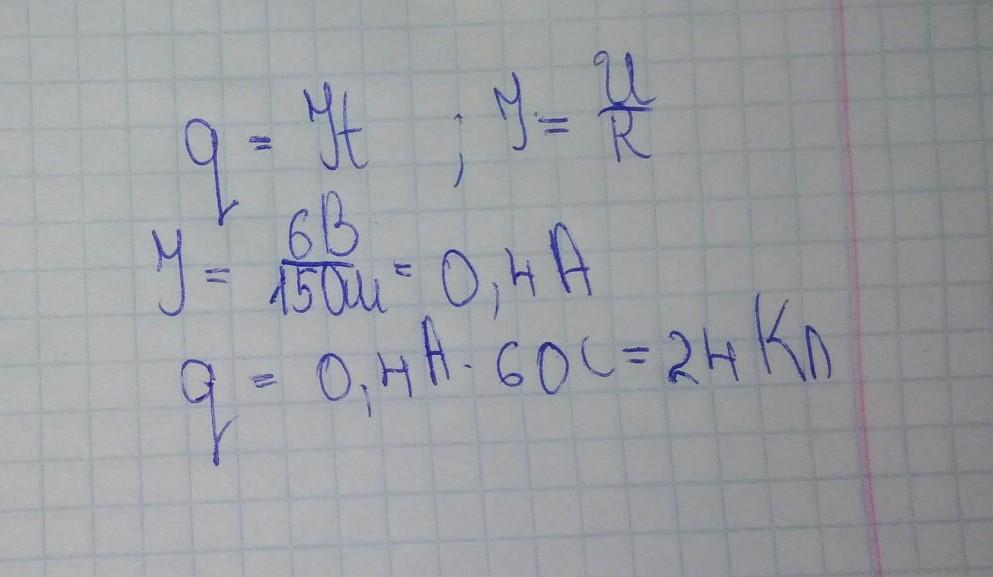 q = It ; I = U/R
I = 6В/15Ом = 0,4 А
q = 0,4 А · 60 с = 24 Кл